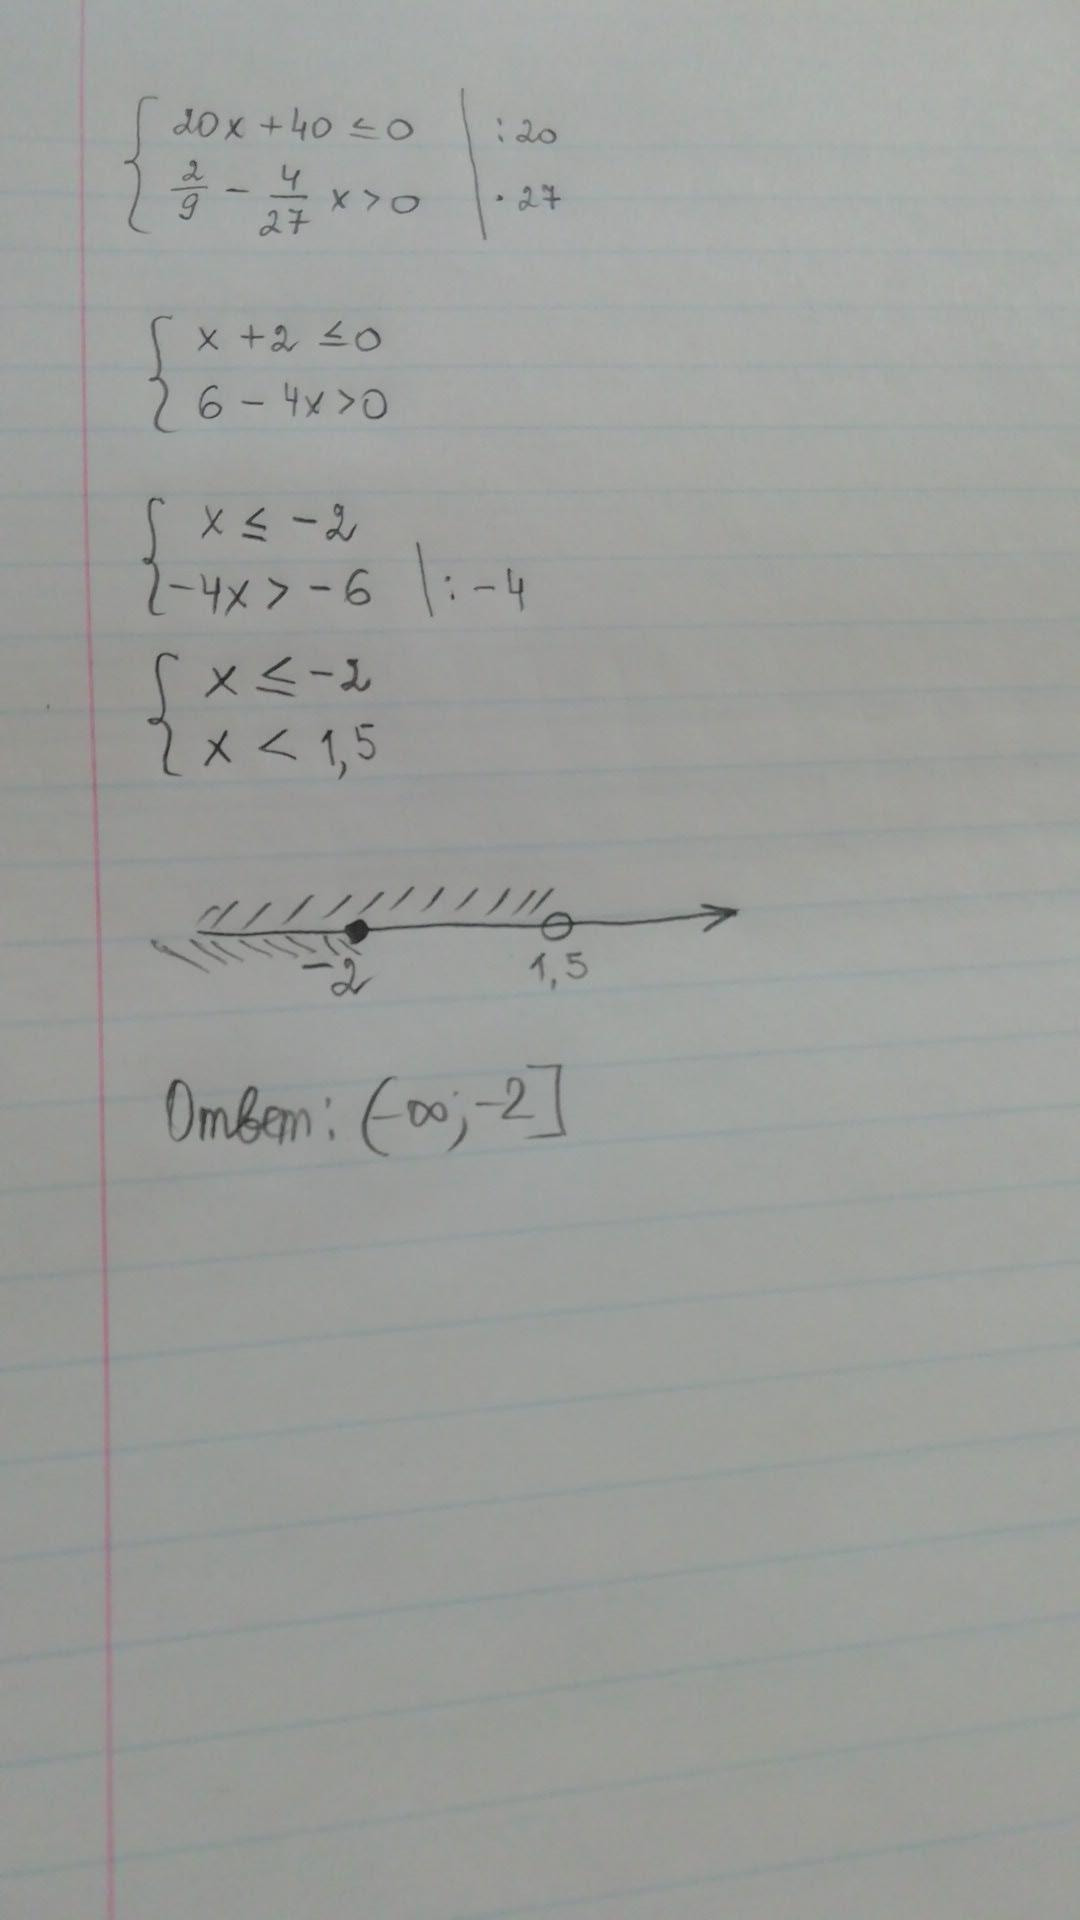 20x + 40 ≤ 0 | : 20
2/9 - 4/27 x > 0 | · 27
x + 2 ≤ 0
6 - 4x > 0
x ≤ -2
-4x > -6 | : -4
x ≤ -2
x < 1,5
-2 1,5
Ответ: (-∞; -2]